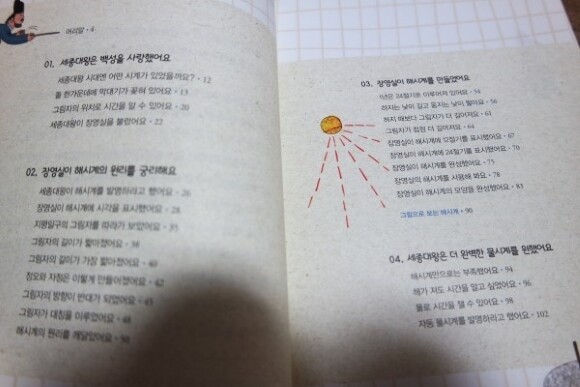 머리말 · 6
01. 세종대왕은 백성을 사랑했어요
세종대왕 시대엔 어떤 시계가 있었을까요? · 12
돌 한가운데에 막대기가 꽂혀 있어요 · 15
그림자의 위치로 시간을 알 수 있어요 · 20
세종대왕이 장영실을 불렀어요 · 22
02. 장영실이 해시계의 원리를 궁리해요
세종대왕이 해시계를 발명하라고 했어요 · 26
장영실이 해시계에 시각을 표시했어요 · 28
지평일구의 그림자를 따라가 보았어요 · 35
그림자의 길이가 짧아졌어요 · 38
그림자의 길이가 가장 짧아졌어요 · 40
정오와 자정은 이렇게 만들어졌어요 · 42
그림자의 방향이 반대가 되었어요 · 45
그림자가 대칭을 이루었어요 · 48
해시계의 원리를 깨달았어요 · 50
03. 장영실이 해시계를 만들었어요
1년은 24절기로 이루어져 있어요 · 54
하지는 낮이 길고 동지는 낮이 짧아요 · 56
하지 때보다 그림자가 더 길어져요 · 61
그림자가 점점 더 길어져요 · 64
장영실이 해시계에 24절기를 표시했어요 · 70
장영실이 해시계를 완성했어요 · 75
장영실의 해시계를 사용해 봐요 · 78
장영실이 해시계의 모양을 완성했어요 · 83
그림으로 보는 해시계 · 90
04. 세종대왕은 더 완벽한 물시계를 원했어요
해시계만으로는 부족했어요 · 94
해가 져도 시간을 알고 싶었어요 · 96
물로 시간을 잴 수 있어요 · 98
자동 물시계를 발명하라고 했어요 · 102